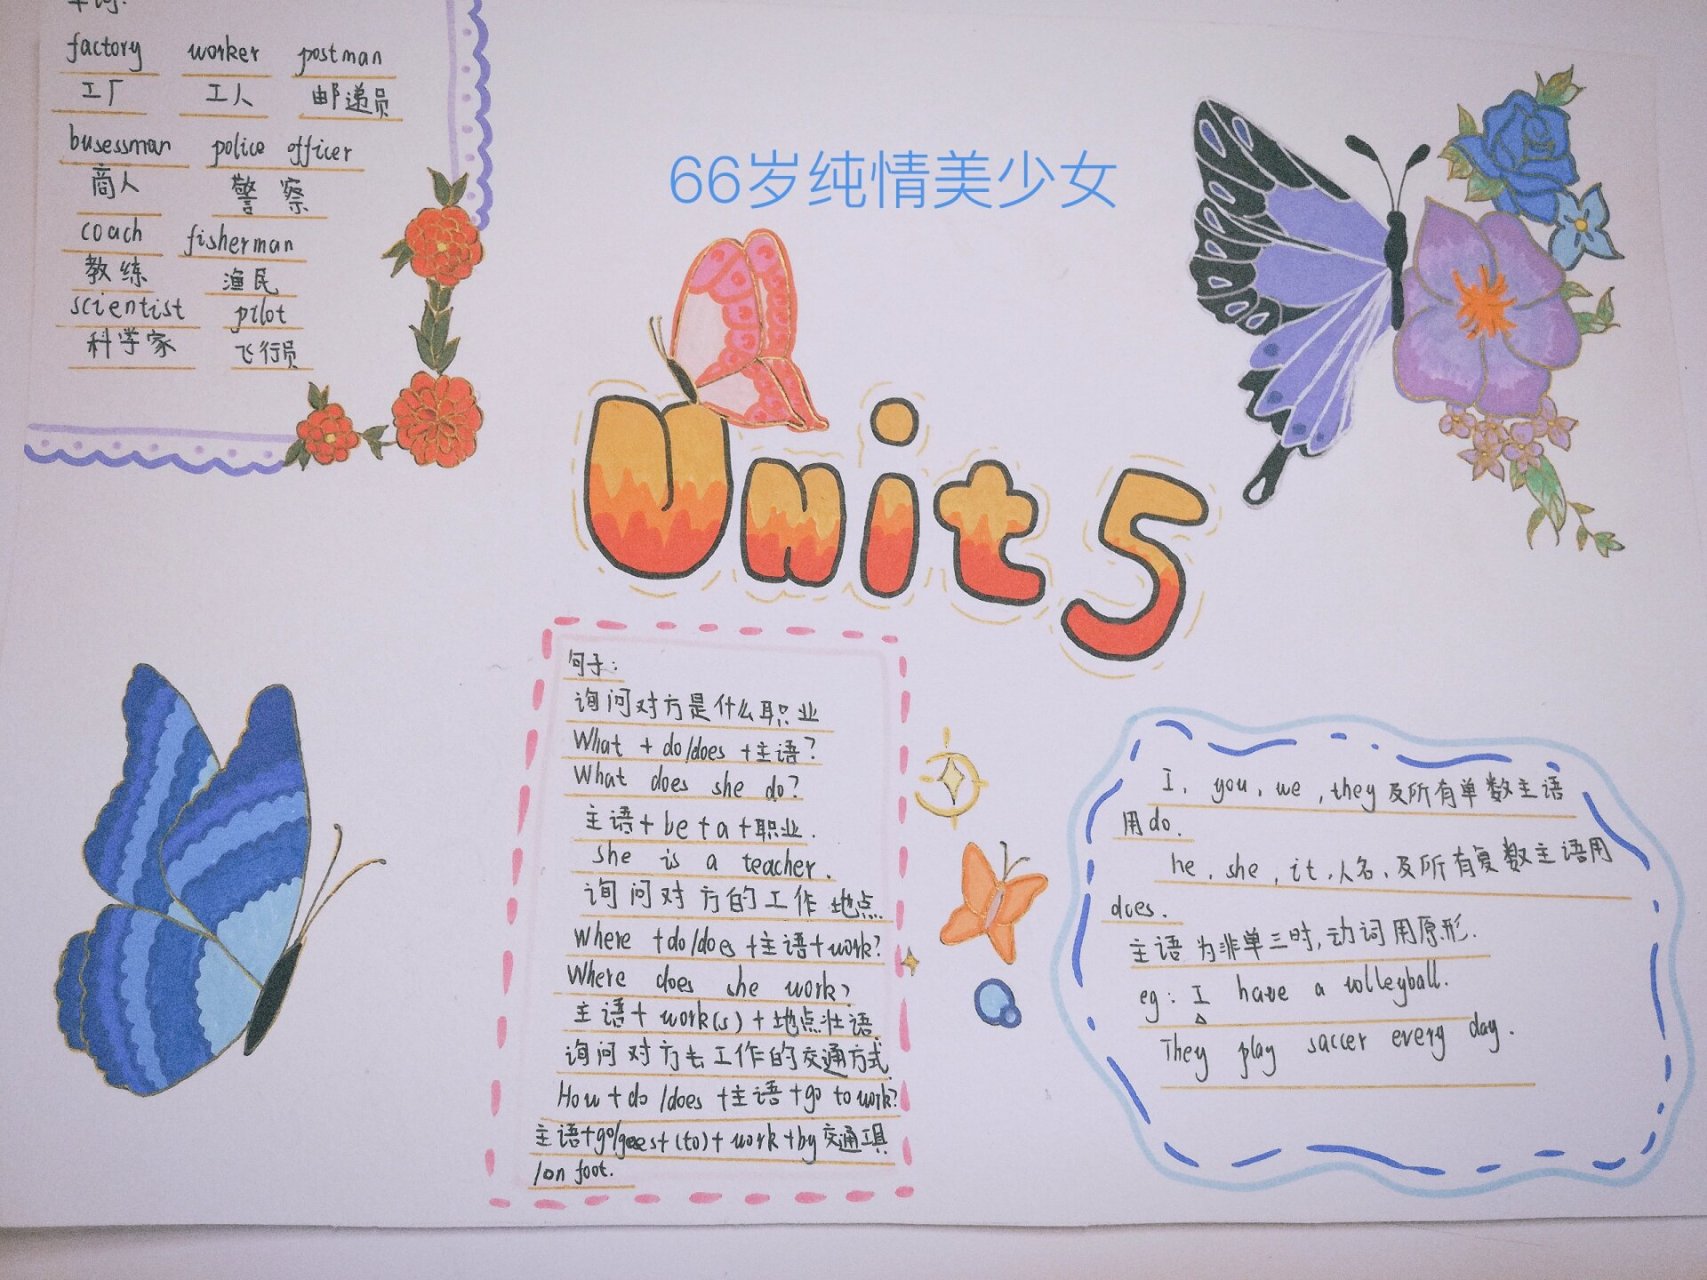 单词:
factory worker postman
工厂 工人 邮递员
busessman police officer
商人 警察
coach fisherman
教练 渔民
scientist pilot
科学家 飞行员
66岁纯情美少女
Unit 5
句子:
询问对方是什么职业
What + do/does +主语?
What does she do?
主语+be+a+职业.
she is a teacher.
询问对方的工作地点
Where +do/does +主语+work?
Where does she work?
主语+ work(s) +地点壮语
询问对方去工作的交通方式
How + do /does +主语 +go to work?
主语+go/goes+(to)+ work +by交通工具
/on foot.
I, you, we, they及所有单数主语
用do.
he, she, it,人名、及所有复数主语用
does.
主语为非单三时,动词用原形.
eg: I have a volleyball.
They play saccer every day.